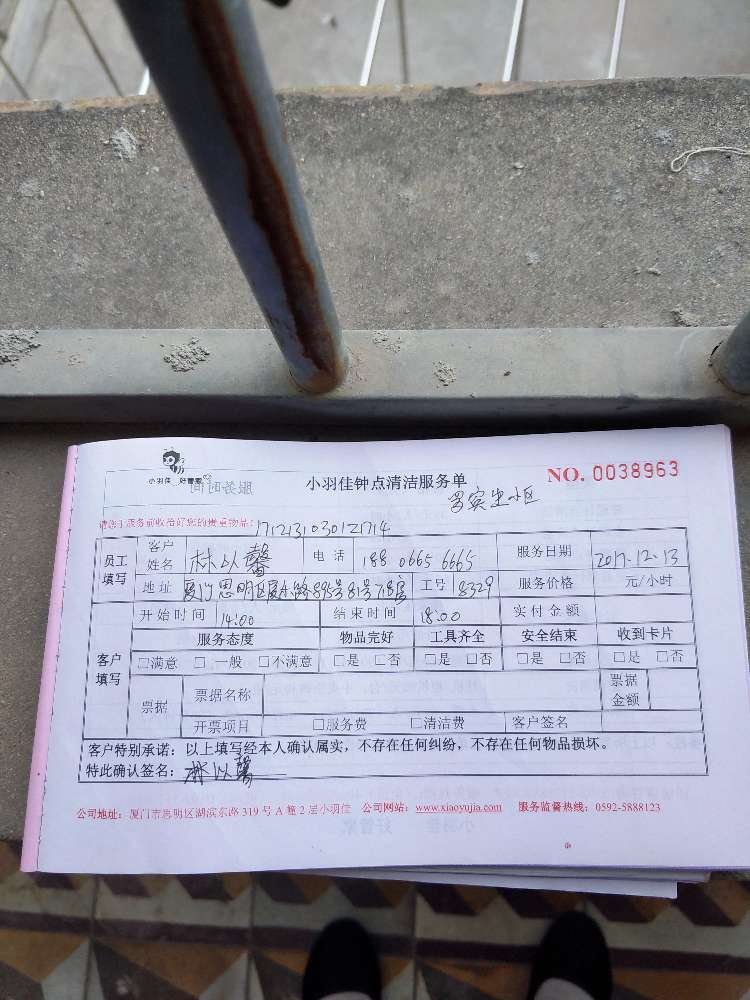 小羽佳 好管家
小羽佳钟点清洁服务单
NO. 0038963
宝生小区
请您于服务前收拾好您的贵重物品：
1712131030121714
员工填写 客户姓名 林以馨 电话 188 0665 6665 服务日期 2017.12.13
地址 厦门思明区 895号81号718室 工号 8329 服务价格 元/小时
客户填写 开始时间 14:00 结束时间 18:00 实付金额
服务态度 物品完好 工具齐全 安全结束 收到卡片
□满意 □一般 □不满意 □是 □否 □是 □否 □是 □否 □是 □否
票据 票据名称 票据金额
开票项目 □服务费 □清洁费 客户签名
客户特别承诺：以上填写经本人确认属实，不存在任何纠纷，不存在任何物品损坏。
特此确认签名：林以馨
公司地址：厦门市思明区湖滨东路 319 号 A 幢 2 层小羽佳 公司网站：www.xiaoyujia.com 服务监督热线：0592-5888123